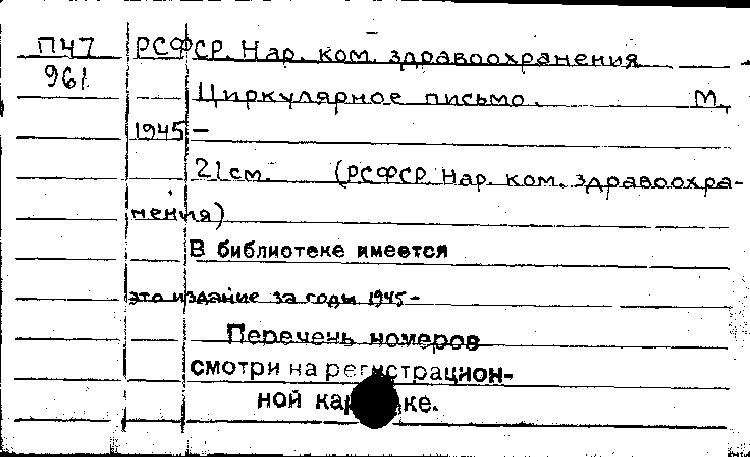 П47 РСФСР. Нар. ком. здравоохранения
961
Циркулярное письмо. М.,
1945 –
21 см. (РСФСР. Нар. ком. здравоохра-
нения)
В библиотеке имеется
это издание за годы 1945 –
Перечень номеров
смотри на регистрацион-
ной